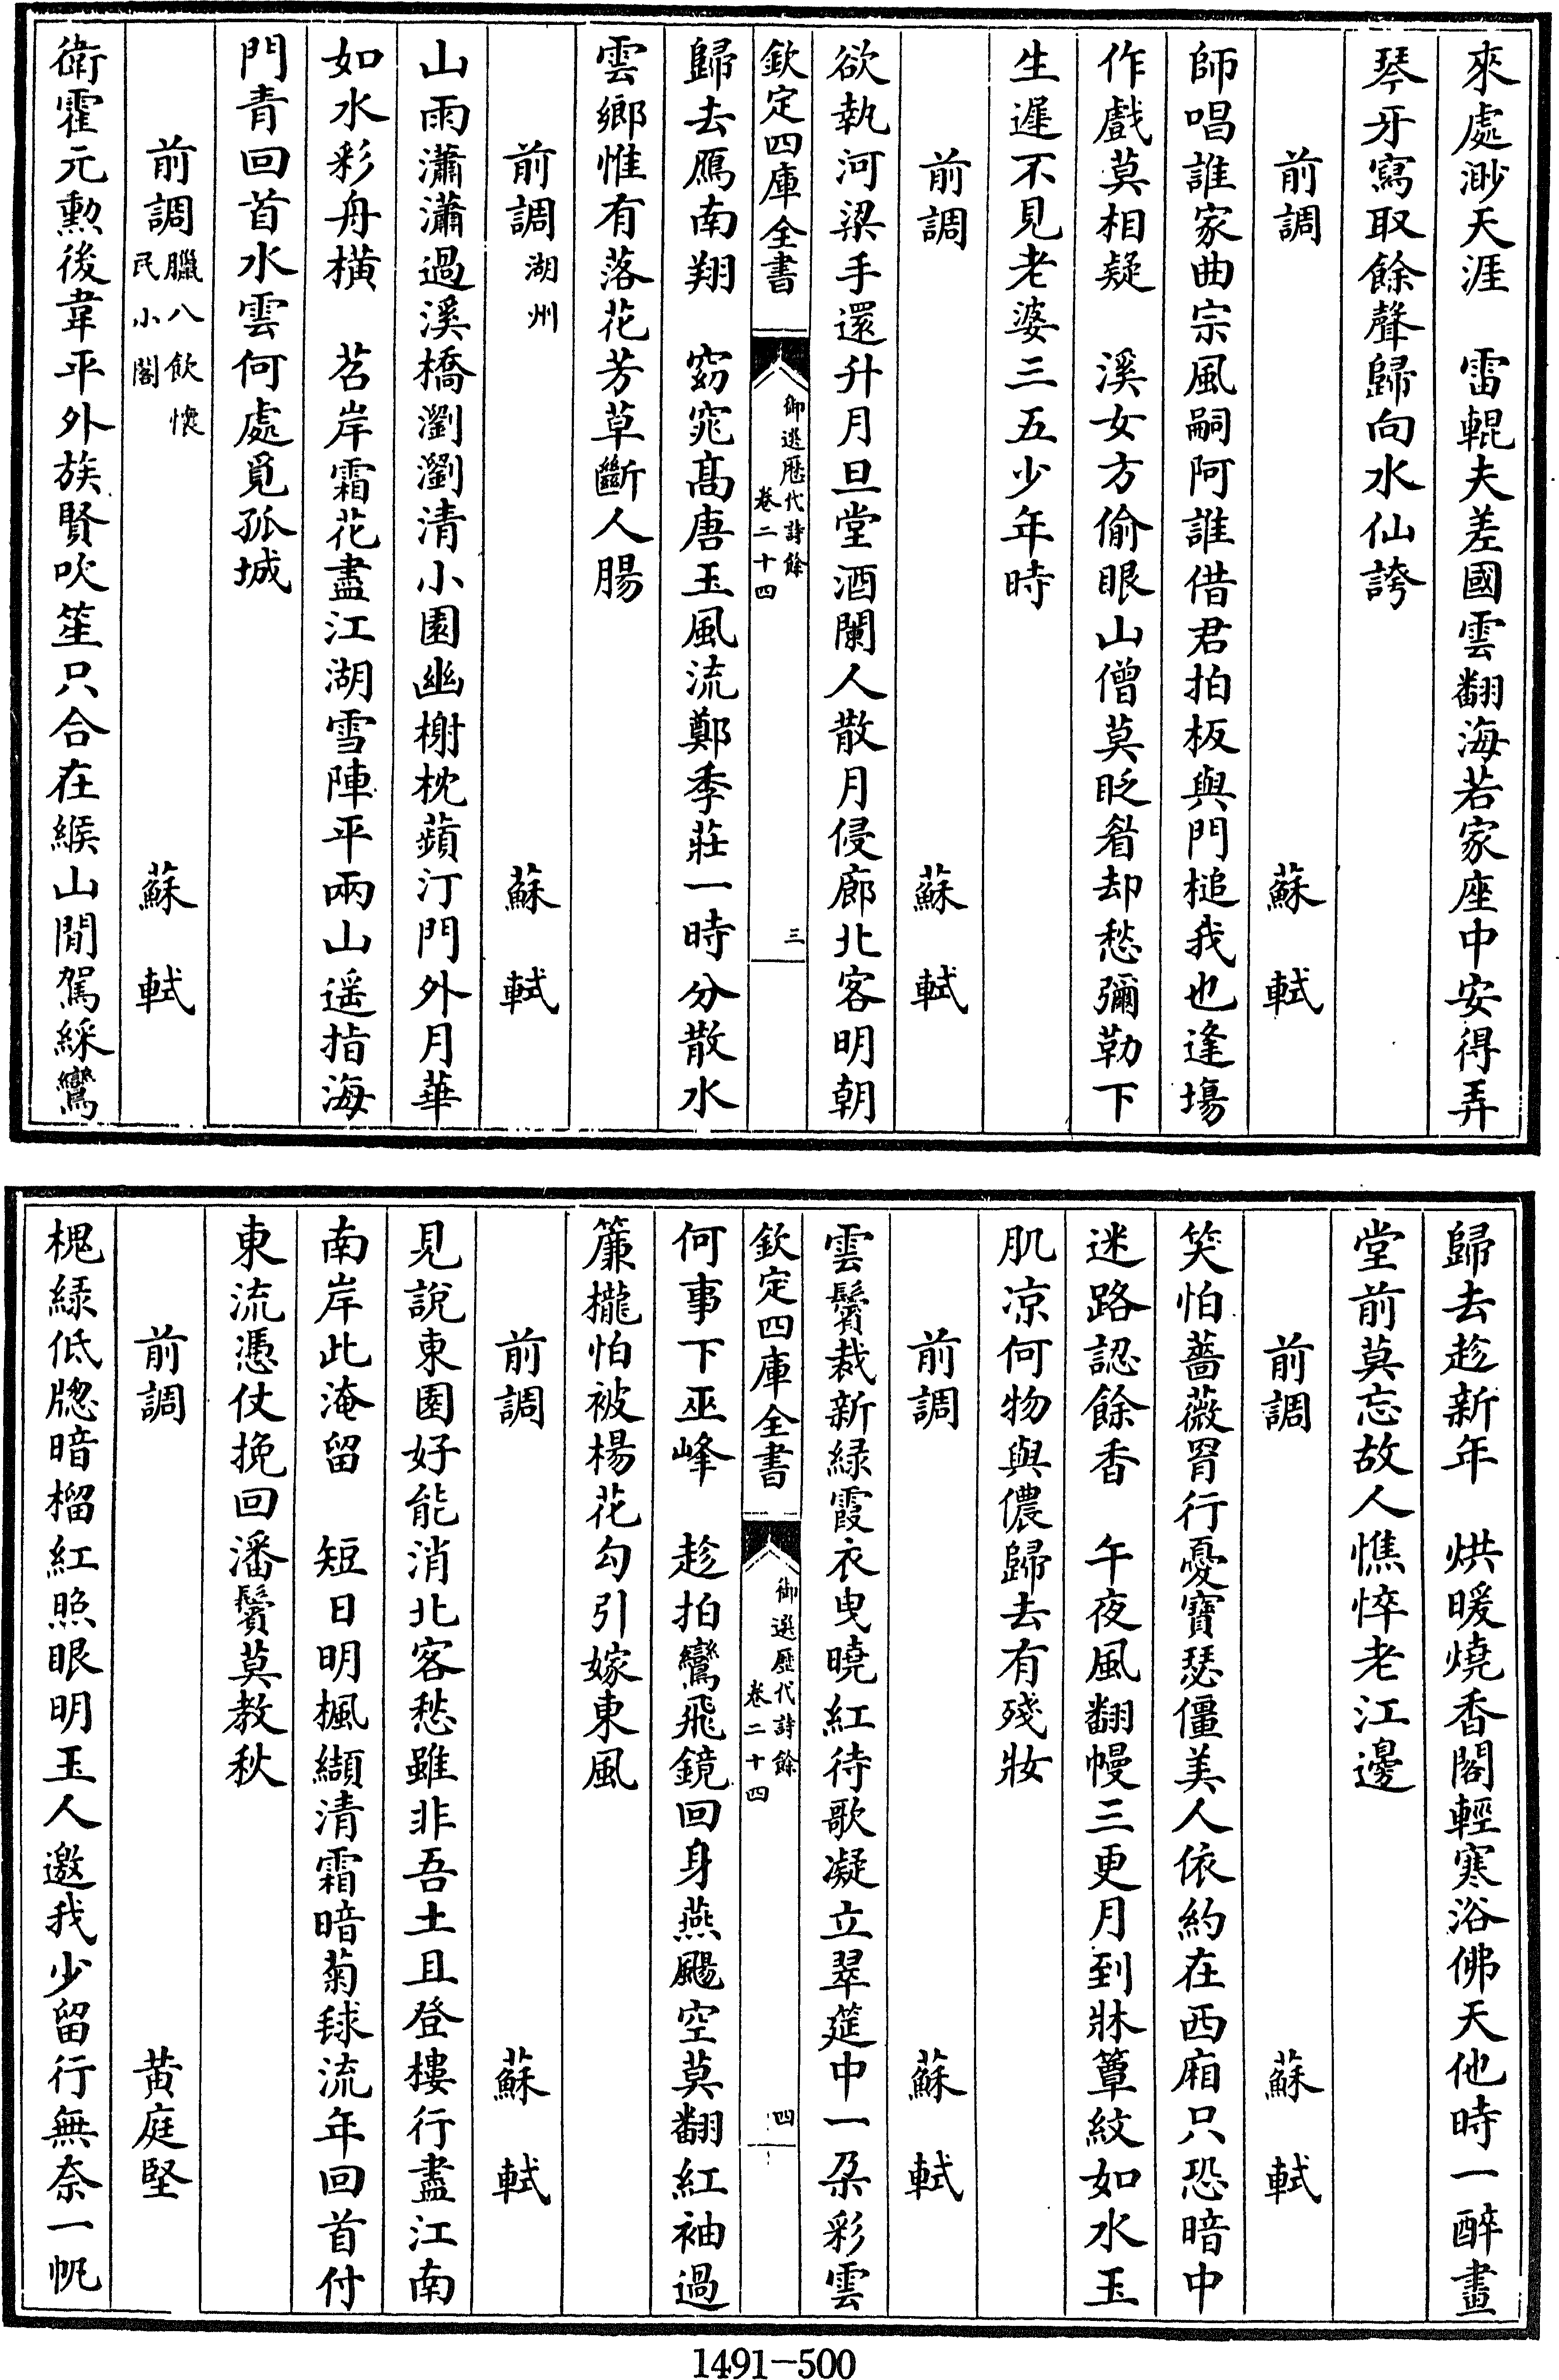 來處渺天涯　雷輥夫差國雲翻海若家座中安得弄
琴牙寫取餘聲歸向水仙誇
前調　蘇軾
師唱誰家曲宗風嗣阿誰借君拍板與門槌我也逢場
作戲莫相疑　溪女方偷眼山僧莫眨眉却愁彌勒下
生遲不見老婆三五少年時
前調　蘇軾
欲執河梁手還升月旦堂酒闌人散月侵廊北客明朝
欽定四庫全書　御選歷代詩餘卷二十四　三
歸去鴈南翔　窈窕高唐玉風流鄭季莊一時分散水
雲鄉惟有落花芳草斷人腸
前調湖州　蘇軾
山雨瀟瀟過溪橋瀏瀏清小園幽榭枕蘋汀門外月華
如水彩舟橫　苕岸霜花盡江湖雪陣平兩山遥指海
門青回首水雲何處覓孤城
前調臘八飲懷民小閣　蘇軾
衛霍元勲後韋平外族賢吹笙只合在緱山閒駕綵鸞
歸去趁新年　烘暖燒香閣輕寒浴佛天他時一醉畫
堂前莫忘故人憔悴老江邊
前調　蘇軾
笑怕薔薇罥行憂寶瑟僵美人依約在西廂只恐暗中
迷路認餘香　午夜風翻幔三更月到牀簟紋如水玉
肌凉何物與儂歸去有殘妝
前調　蘇軾
雲鬢裁新緑霞衣曳曉紅待歌凝立翠筵中一朶彩雲
欽定四庫全書　御選歷代詩餘卷二十四　四
何事下巫峰　趁拍鸞飛鏡回身燕颺空莫翻紅袖過
簾櫳怕被楊花勾引嫁東風
前調　蘇軾
見說東園好能消北客愁雖非吾土且登樓行盡江南
南岸此淹留　短日明楓纈清霜暗菊毬流年回首付
東流憑仗挽回潘鬢莫教秋
前調　黃庭堅
槐緑低牕暗榴紅照眼明玉人邀我少留行無奈一帆
1491-500